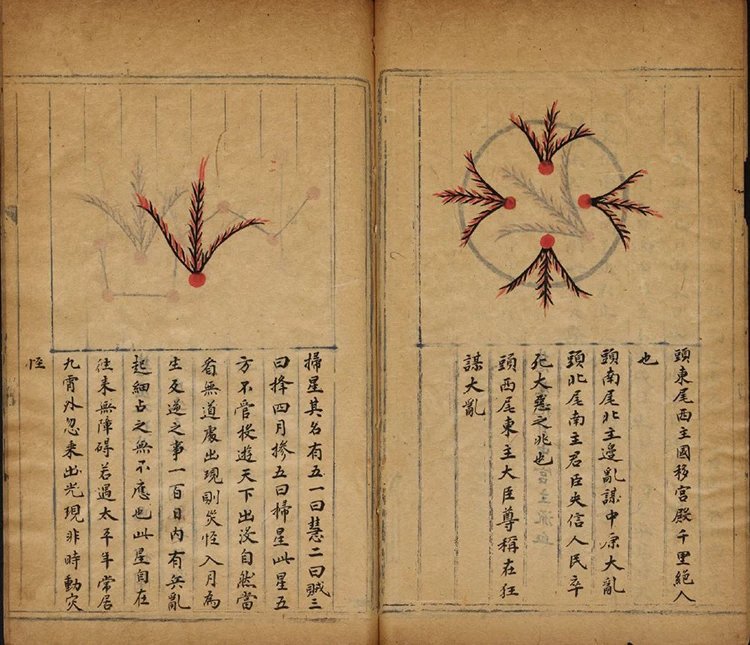 頭東尾西主國移宮殿千里絕人
也
頭南尾北主邊亂謀中原大亂
頭北尾南主君臣失信人民卒
死大惡之兆也
頭西尾東主大臣尊稱在狂
謀大亂
掃星其名有五一曰慧二曰賊三
曰四月摻五曰掃星此星五
方不管投遊天下出没自然當
看無道處出現則災怪入月為
生反逆之事一百日内有兵亂
起細占之無不應也此星自在
往来無障碍若遇太平年常居
九霄外忽来出光現非時動灾
怪